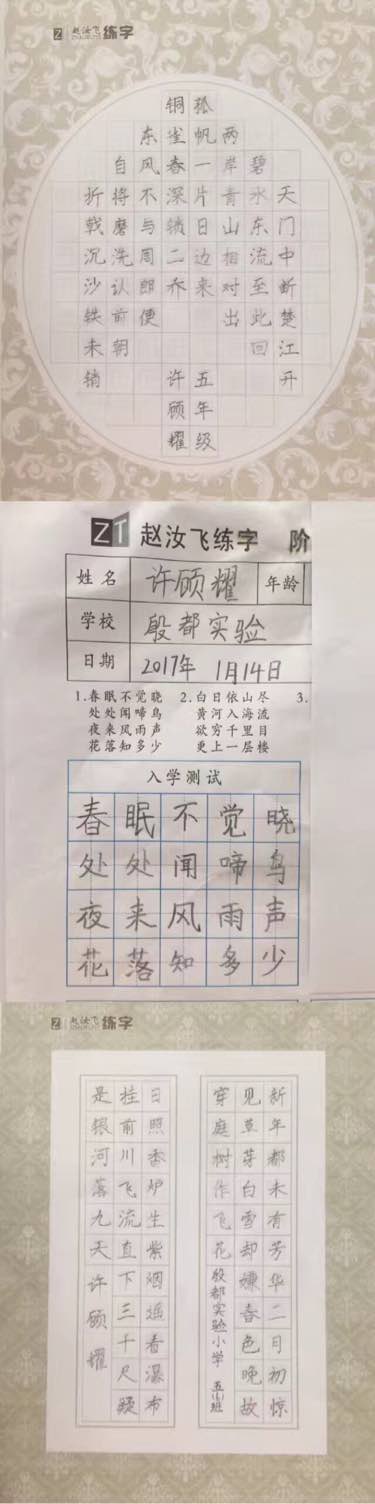 赵汝飞练字
天门中断楚江开
碧水东流至此回
两岸青山相对出
孤帆一片日边来 五年级
铜雀春深锁二乔 许顾耀
东风不与周郎便
自将磨洗认前朝
折戟沉沙铁未销
ZT 赵汝飞练字 阶
姓名 许顾耀 年龄
学校 殷都实验
日期 2017年 1月14日
1.春眠不觉晓 2.白日依山尽 3.
处处闻啼鸟 黄河入海流
夜来风雨声 欲穷千里目
花落知多少 更上一层楼
入学测试
春眠不觉晓
处处闻啼鸟
夜来风雨声
花落知多少
赵汝飞练字
新年都未有芳华二月初惊
见草芽白雪却嫌春色晚故
穿庭树作飞花 殷都实验小学
日照香炉生紫烟遥看瀑布
挂前川飞流直下三千尺疑
是银河落九天 许顾耀